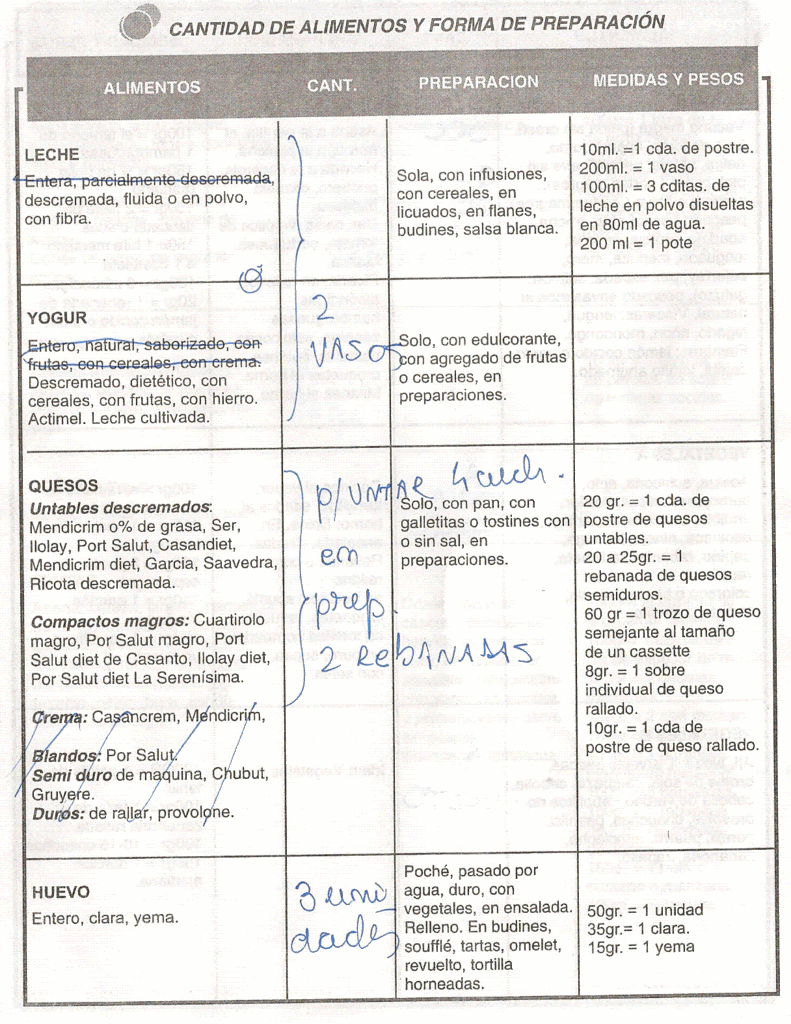 CANTIDAD DE ALIMENTOS Y FORMA DE PREPARACIÓN
ALIMENTOS
CANT.
PREPARACION
MEDIDAS Y PESOS
LECHE
Entera, parcialmente descremada,
descremada, fluida o en polvo,
con fibra.
Sola, con infusiones,
con cereales, en
licuados, en flanes,
budines, salsa blanca.
10ml. =1 cda. de postre.
200ml. = 1 vaso
100ml. = 3 cditas. de
leche en polvo disueltas
en 80ml de agua.
200 ml = 1 pote
YOGUR
Entero, natural, saborizado, con
frutas, con cereales, con crema.
Descremado, dietético, con
cereales, con frutas, con hierro.
Actimel. Leche cultivada.
2
VASOS
Solo, con edulcorante,
con agregado de frutas
o cereales, en
preparaciones.
QUESOS
Untables descremados:
Mendicrim o% de grasa, Ser,
Ilolay, Port Salut, Casandiet,
Mendicrim diet, Garcia, Saavedra,
Ricota descremada.
Compactos magros: Cuartirolo
magro, Por Salut magro, Port
Salut diet de Casanto, Ilolay diet,
Por Salut diet La Serenísima.
Crema: Casancrem, Mendicrim,
Blandos: Por Salut.
Semi duro de maquina, Chubut,
Gruyere.
Duros: de rallar, provolone.
p/UNTAR 4
en
prep
2 REBANADAS
Solo, con pan, con
galletitas o tostines con
o sin sal, en
preparaciones.
20 gr. = 1 cda. de
postre de quesos
untables.
20 a 25gr. = 1
rebanada de quesos
semiduros.
60 gr = 1 trozo de queso
semejante al tamaño
de un cassette
8gr. = 1 sobre
individual de queso
rallado.
10gr. = 1 cda de
postre de queso rallado.
HUEVO
Entero, clara, yema.
3 uni
dades
Poché, pasado por
agua, duro, con
vegetales, en ensalada.
Relleno. En budines,
soufflé, tartas, omelet,
revuelto, tortilla
horneadas.
50gr. = 1 unidad
35gr.= 1 clara.
15gr. = 1 yema